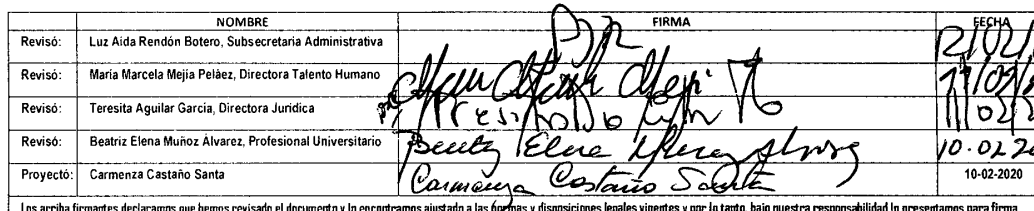 NOMBRE FIRMA FECHA
Revisó: Luz Aida Rendón Botero, Subsecretaria Administrativa 12/02/
Revisó: María Marcela Mejía Peláez, Directora Talento Humano
Revisó: Teresita Aguilar García, Directora Jurídica
Revisó: Beatriz Elena Muñoz Álvarez, Profesional Universitario 10.02
Proyectó: Carmenza Castaño Santa Carmenza Castaño Santa 10-02-2020
Los arriba firmantes declaramos que hemos revisado el documento y lo encontramos ajustado a las normas y disposiciones legales vigentes y por lo tanto, bajo nuestra responsabilidad lo presentamos para firma